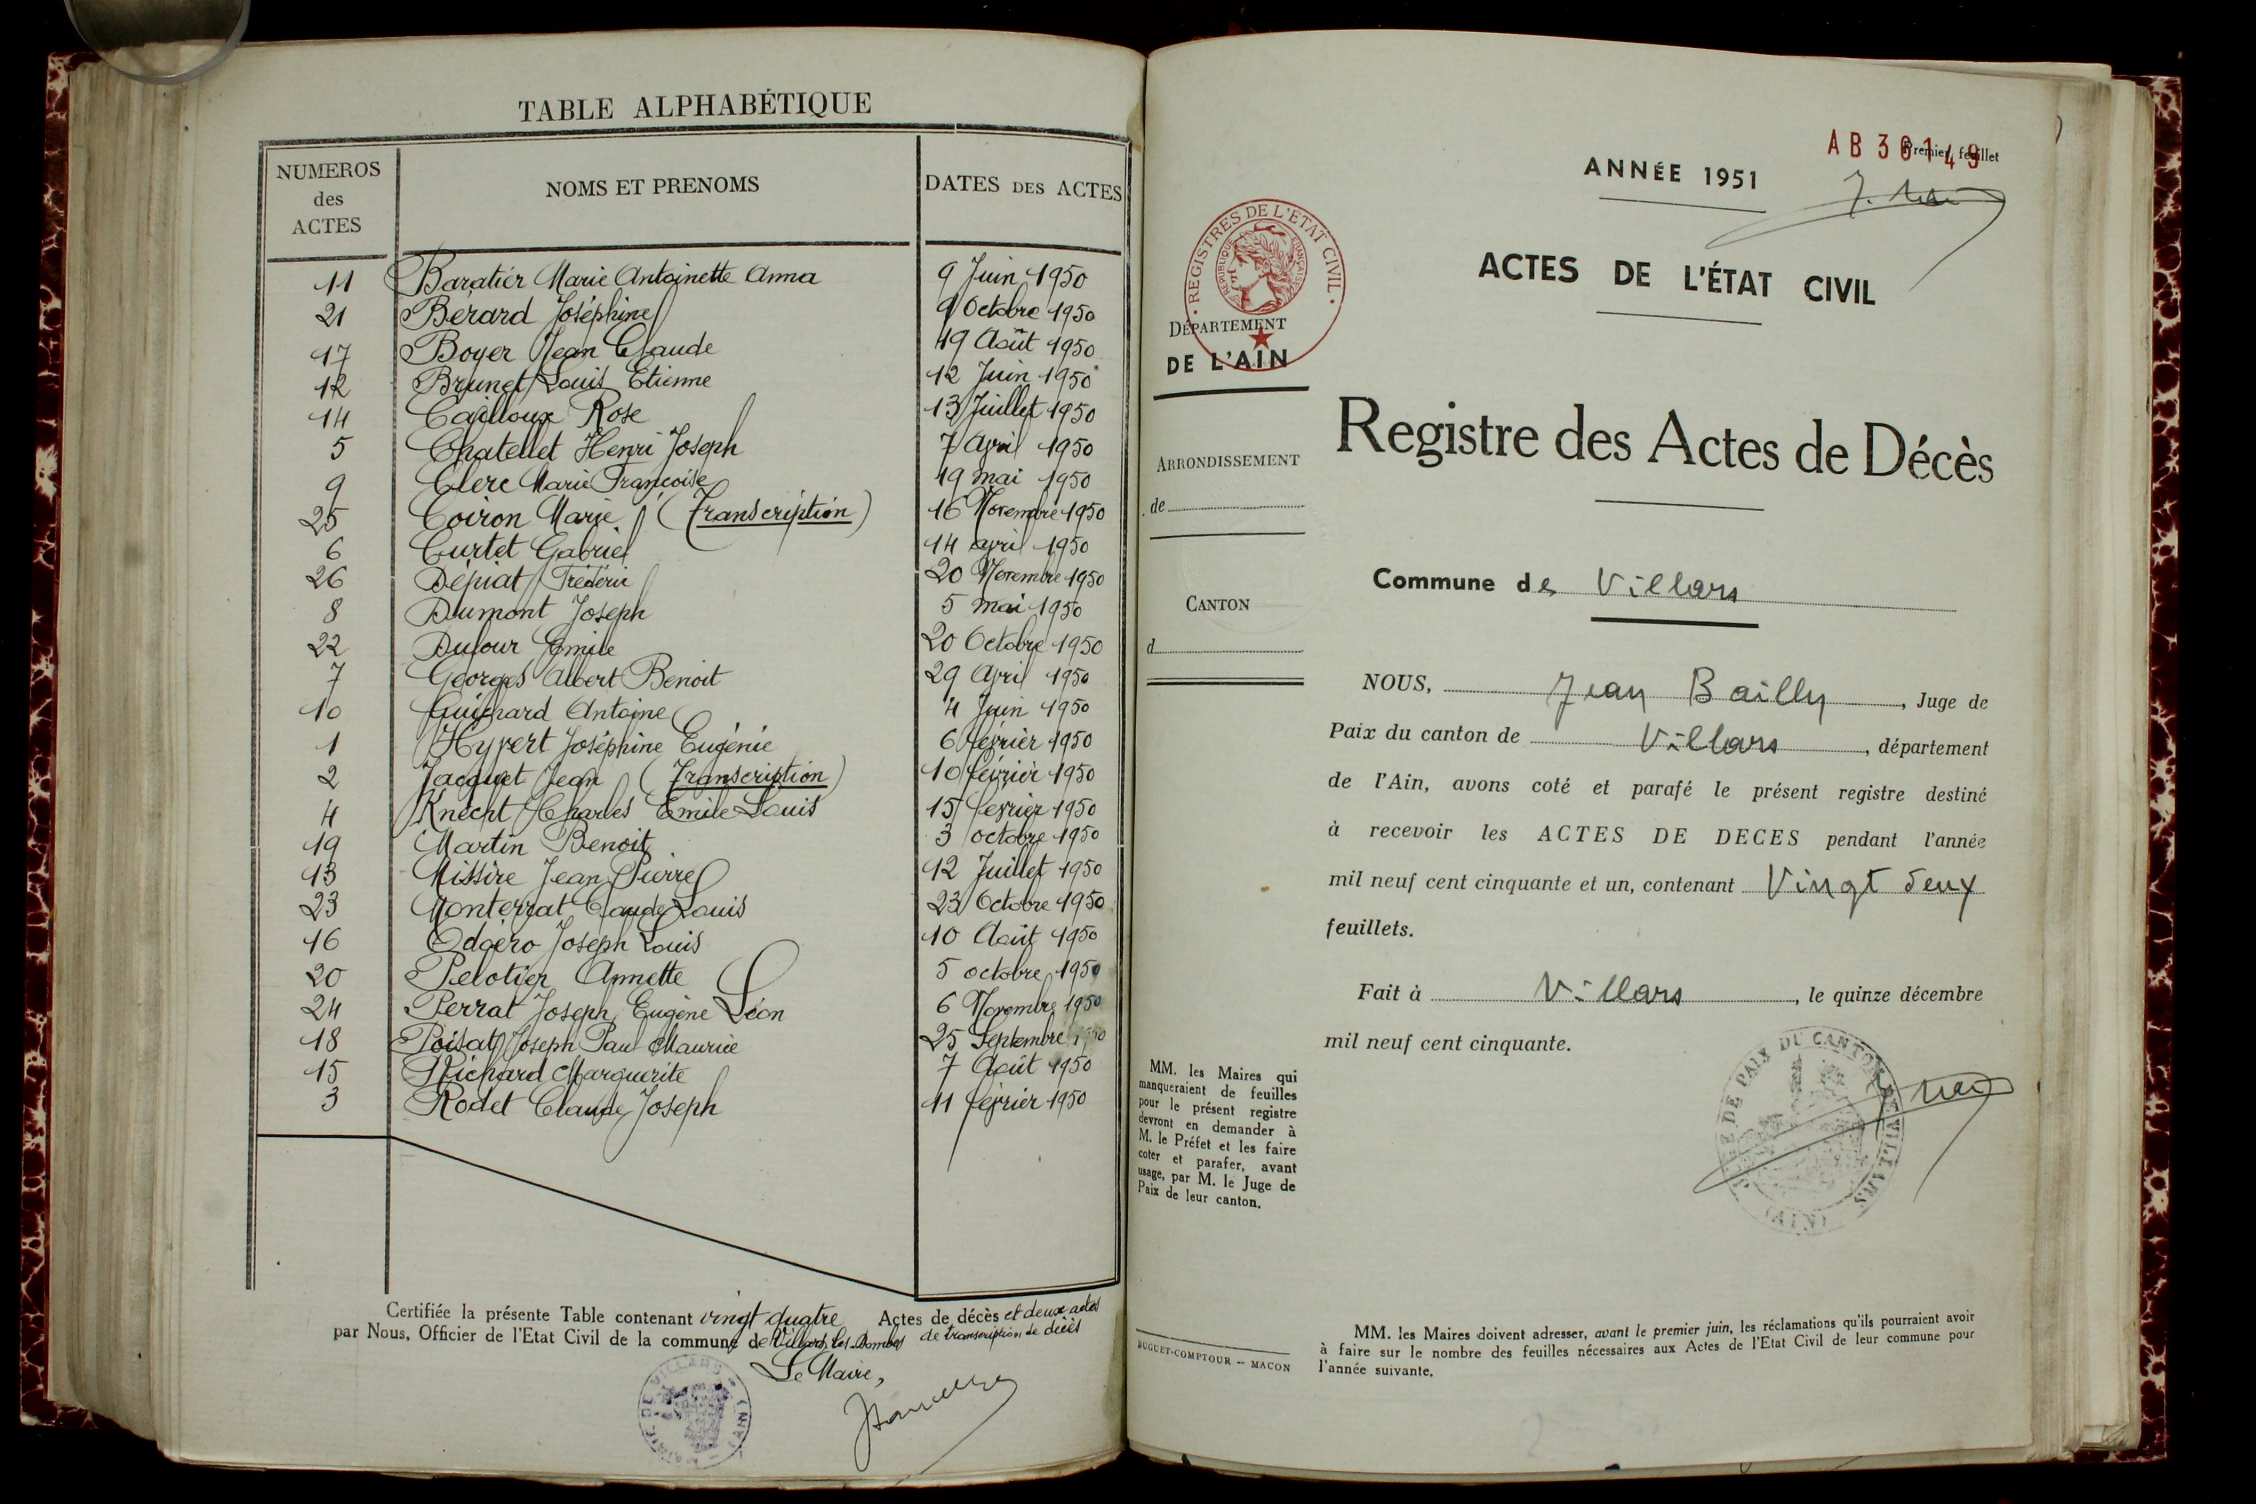 TABLE ALPHABÉTIQUE
NUMEROS des ACTES
NOMS ET PRENOMS
DATES DES ACTES
11 Baratier Marie Antoinette Anna 9 Juin 1950
21 Bérard Joséphine 9 Octobre 1950
17 Boyer Jean Claude 19 Août 1950
12 Brunet Louis Etienne 12 Juin 1950
14 Cailloux Rose 13 Juillet 1950
5 Chatellet Henri Joseph 7 Avril 1950
9 Clerc Marie Françoise 19 mai 1950
25 Coiron Marie (Transcription) 16 Novembre 1950
6 Curtet Gabriel 14 avril 1950
26 Dépiat Frédéric 20 Novembre 1950
8 Dumont Joseph 5 mai 1950
22 Dufour Emile 20 Octobre 1950
7 Georges Albert Benoit 29 Avril 1950
10 Guichard Antoine 4 Juin 1950
1 Hyvert Joséphine Eugénie 6 février 1950
2 Jacquet Jean (Transcription) 10 février 1950
4 Knecht Charles Emile Louis 15 février 1950
19 Martin Benoit 3 octobre 1950
13 Missire Jean Pierre 12 Juillet 1950
23 Monterrat Claude Louis 23 Octobre 1950
16 Odgéro Joseph Louis 10 Août 1950
20 Pelotier Annette 5 octobre 1950
24 Perrat Joseph Eugène Léon 6 Novembre 1950
18 Poisat Joseph Paul Maurice 25 Septembre 1950
15 Richard Marguerite 7 Août 1950
3 Rodet Claude Joseph 11 février 1950
Certifiée la présente Table contenant vingt quatre Actes de décès et deux actes
par Nous, Officier de l'Etat Civil de la commune de Villars les Dombes de transcription de décès
Le Maire,
AB 36149
Premier feuillet
ANNÉE 1951
REGISTRES DE L'ETAT CIVIL
REPUBLIQUE FRANÇAISE
ACTES DE L'ÉTAT CIVIL
DÉPARTEMENT
DE L'AIN
Registre des Actes de Décès
ARRONDISSEMENT
de
Commune de Villars
CANTON
d
NOUS, Jean Bailly, Juge de
Paix du canton de Villars, département
de l'Ain, avons coté et parafé le présent registre destiné
à recevoir les ACTES DE DECES pendant l'année
mil neuf cent cinquante et un, contenant Vingt deux
feuillets.
Fait à Villars, le quinze décembre
mil neuf cent cinquante.
DE PAIX DU CANTON DE VILLARS
(AIN)
MM. les Maires qui
manqueraient de feuilles
pour le présent registre
devront en demander à
M. le Préfet et les faire
coter et parafer, avant
usage, par M. le Juge de
Paix de leur canton.
BUGUET-COMPTOUR — MACON
MM. les Maires doivent adresser, avant le premier juin, les réclamations qu'ils pourraient avoir
à faire sur le nombre des feuilles nécessaires aux Actes de l'Etat Civil de leur commune pour
l'année suivante.